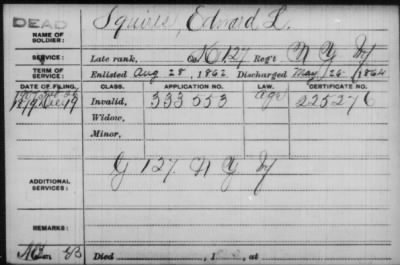 DEAD
NAME OF SOLDIER: Squires, Edward L.
SERVICE: Late rank, Co. 127 Reg't N Y
TERM OF SERVICE: Enlisted Aug 28, 1862 Discharged May 26, 1864
DATE OF FILING. CLASS. APPLICATION NO. LAW. CERTIFICATE NO.
Invalid, 333553 225276
Widow,
Minor,
ADDITIONAL SERVICES: G 127. N Y
REMARKS:
Died , 1 , at